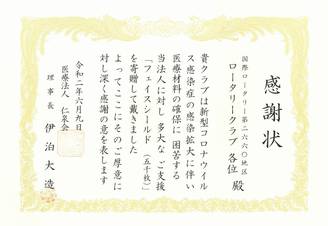 感謝状
国際ロータリー第二六六〇地区
ロータリークラブ 各位 殿
貴クラブは新型コロナウイル
ス感染症の感染拡大に伴い
医療材料の確保に 困苦する
当法人に対し 多大な ご支援
「フェイスシールド」（五千枚）
を寄贈して戴きました
よってここにそのご厚意に
対し深く感謝の意を表します
令和二年六月九日
医療法人 仁泉会
理事長 伊治大造